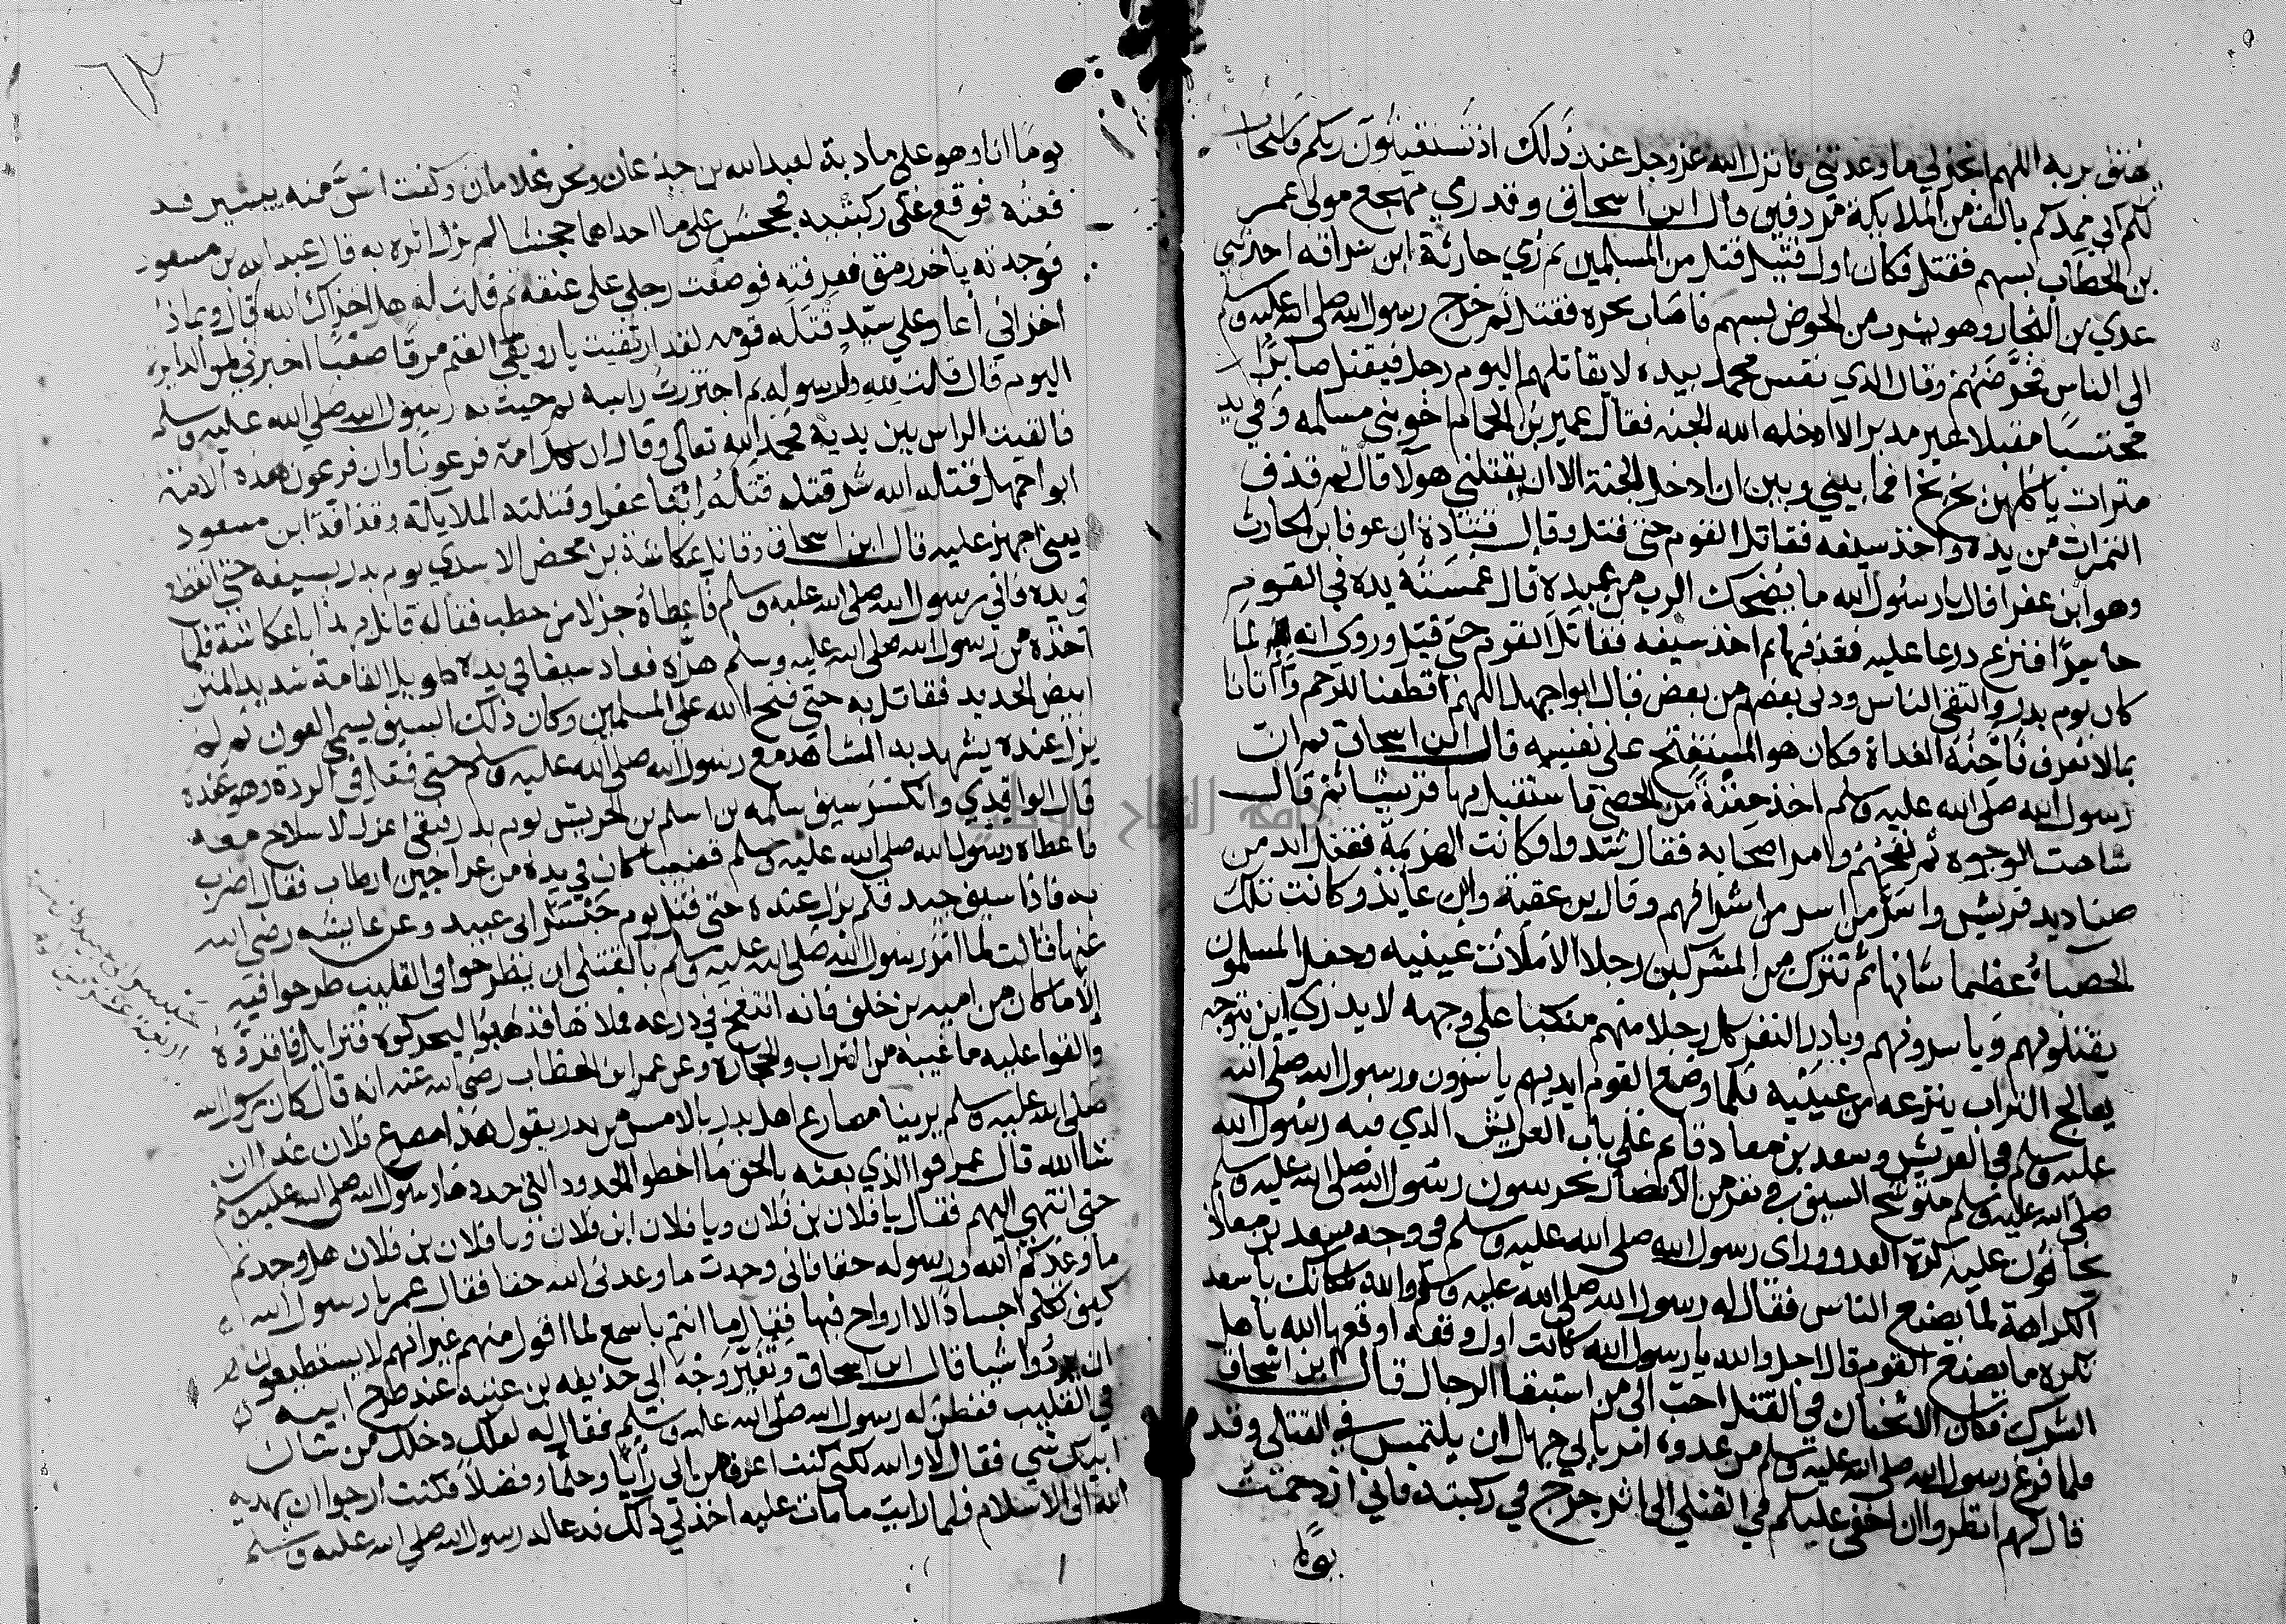 هتف بربه اللهم انجز لي ما وعدتني فانزل الله عز وجل عند ذلك اذ تستغيثون ربكم فاستجاب
لكم اني ممدكم بالف من الملايكة مردفين قال ابن اسحاق وقد رمي مهجع مولى عمر
بن الخطاب بسهم فقتل فكان اول قتيل قتل من المسلمين ثم رمي حارثة ابن سراقه احد بني
عدي بن النجار وهو يشرب من الحوض بسهم فاصاب نحره فقتل ثم خرج رسول الله صلى الله عليه وسلم
الى الناس فحرضهم وقال الذي نفس محمد بيده لا يقاتلهم اليوم رجل فيقتل صابرا
محتسبا مقبلا غير مدبر الا ادخله الله الجنه فقال عمير بن الحمام اخو بني مسلمه وفي يده
تمرات ياكلهن بخ بخ افما بيني وبين ان ادخل الجنة الا ان يقتلني هولا قال ثم قذف
التمرات من يده واخذ سيفه فقاتل القوم حتى قتل وقال قتادة ان عوفا بن الحارث
وهو ابن عفرا قال يا رسول الله ما يضحك الرب من عبده قال غمسته يده في القوم
حاسرا فنزع درعا عليه فقذفها ثم اخذ سيفه فقاتل القوم حتى قتل وروي انه لما
كان يوم بدر والتقى الناس ودنى بعضهم من بعض قال ابو اجهل اللهم اقطعنا للرحم واتانا
بما لا نعرف فاحنه الغداة فكان هو المستفتح على نفسه قال ابن اسحاق ثم ان
رسول الله صلى الله عليه وسلم اخذ حفنة من الحصى فاستقبل بها قريشا ثم قال
شاهت الوجوه ثم نفحهم وامر اصحابه فقال شدوا فكانت الهزيمة فقتل الله من
صناديد قريش واسر من اسر من اشرافهم وقال بن عقبة وابن عايذ وكانت تلك
الحصباء عظيما شانها لم تترك من المشركين رجلا الا ملات عينيه وجعل المسلمون
يقتلونهم وياسرونهم وبادر النفر كل رجلا منهم منكبا على وجهه لا يدري اين يتوجه
يعالج التراب ينزعه من عينيه فلما وضع القوم ايديهم ياسرون ورسول الله صلى الله
عليه وسلم في العريش وسعد بن معاد قايم على باب العريش الذي فيه رسول الله
صلى الله عليه وسلم متوشح السيف في نفر من الانصار يحرسون رسول الله صلى الله عليه وسلم
يخافون عليه كرة العدو وراى رسول الله صلى الله عليه وسلم في وجه سعد بن معاذ
الكراهة لما يصنع الناس فقال له رسول الله صلى الله عليه وسلم والله لكانك يا سعد
تكره ما يصنع القوم قال اجل والله يا رسول الله كانت اول وقعه اوقعها الله باهل
الشرك فكان الاثخان في القتل احب الي من استبقا الرجال قال ابن اسحاق
فلما فرغ رسول الله صلى الله عليه وسلم من عدوه امر بابي جهل ان يلتمس في القتلى وقد
قال لهم انظروا ان اخفي عليكم في القتلي الى اثر جرح في ركبته فاني ازدحمت
يوما
٦٢
يوما انا وهو على مادبة لعبد الله بن جدعان ونحن غلامان وكنت اشف منه بيسير فد
فعته فوقع على ركبتيه فجحش على ما احداهما جحشا لم يزل اثره به قال عبد الله بن مسعود
فوجدته باخر رمق فعرفته فوضعت رجلي على عنقه ثم قلت له هل اخزاك الله قال وبماذا
اخزاني أعار علي سيد قتله قومه لقد ارتقيت يا رويعي الغنم مرقا صعبا اخبرني لمن الدايرة
اليوم قال قلت لله ولرسوله ثم اجتززت راسه ثم جيت به رسول الله صلى الله عليه وسلم
فالقيت الراس بين يديه فحمد الله تعالى وقال ان لكل امة فرعونا وان فرعون هذه الامة
ابو اجهل قتله الله شر قتله قتله ابنا عفرا وقتلته الملايكة وقذافه ابن مسعود
يعني اجهز عليه قال ابن اسحاق وقاتل عكاشة بن محصن الاسدي يوم بدر بسيفه حتى انقطع
في يده فاتى رسول الله صلى الله عليه وسلم فاعطاه جزلا من حطب فقال قاتل بهذا يا عكاشة فلما
اخذه من رسول الله صلى الله عليه وسلم هزه فعاد سيفا في يده طويل القامة شديد المتن
ابيض الحديد فقاتل به حتى فتح الله على المسلمين وكان ذلك السيف يسمى العون ثم لم
يزل عنده يشهد به المشاهد مع رسول الله صلى الله عليه وسلم حتى قتل في الردة وهو عنده
قال الواقدي وانكسر سيف سلمه بن اسلم بن الحريش يوم بدر فبقي اعزل لا سلاح معه
فاعطاه رسول الله صلى الله عليه وسلم قضيبا كان في يده من عراجين ارطاب فقال اضرب
به فاذا سيف جيد فلم يزل عنده حتى قتل يوم جسر ابي عبيد وعن عايشه رضي الله
عنها قالت لما امر رسول الله صلى الله عليه وسلم بالقتلى ان يطرحوا في القليب طرحوا فيه
الا ما كان من اميه بن خلف فانه انتفخ في درعه فملاها فذهبوا ليحركوه فتزايل فاقروه
والقوا عليه ما غيبه من التراب والحجارة وعن عمر ابن الخطاب رضي الله عنه انه قال كان رسول الله
صلى الله عليه وسلم يرينا مصارع اهل بدر بالامس من بدر يقول هذا مصرع فلان غدا ان
شا الله قال عمر فوا الذي بعثه بالحق ما اخطوا الحدود التي حددها رسول الله صلى الله عليه وسلم
حتى انتهى اليهم فقال يا فلان بن فلان ويا فلان ابن فلان ويا فلان بن فلان هل وجدتم
ما وعدكم الله ورسوله حقا فاني وجدت ما وعدني الله حقا فقال عمر يا رسول الله
كيف تكلم اجسادا لا ارواح فيها فقال ما انتم باسمع لما اقول منهم غير انهم لا يستطيعون
ان يردوا شيا قال ابن اسحاق وتغير وجه ابي حذيفه بن عتبه عند طرح ابيه
في القليب ففطن له رسول الله صلى الله عليه وسلم فقال له لعلك دخلك من شان
ابيك شي فقال لا والله لكني كنت اعرف من ابي رأيا وحلما وفضلا فكنت ارجوا ان يهديه
الله الى الاسلام فلما رايت ما مات عليه اخذني ذلك فدعا له رسول الله صلى الله عليه وسلم